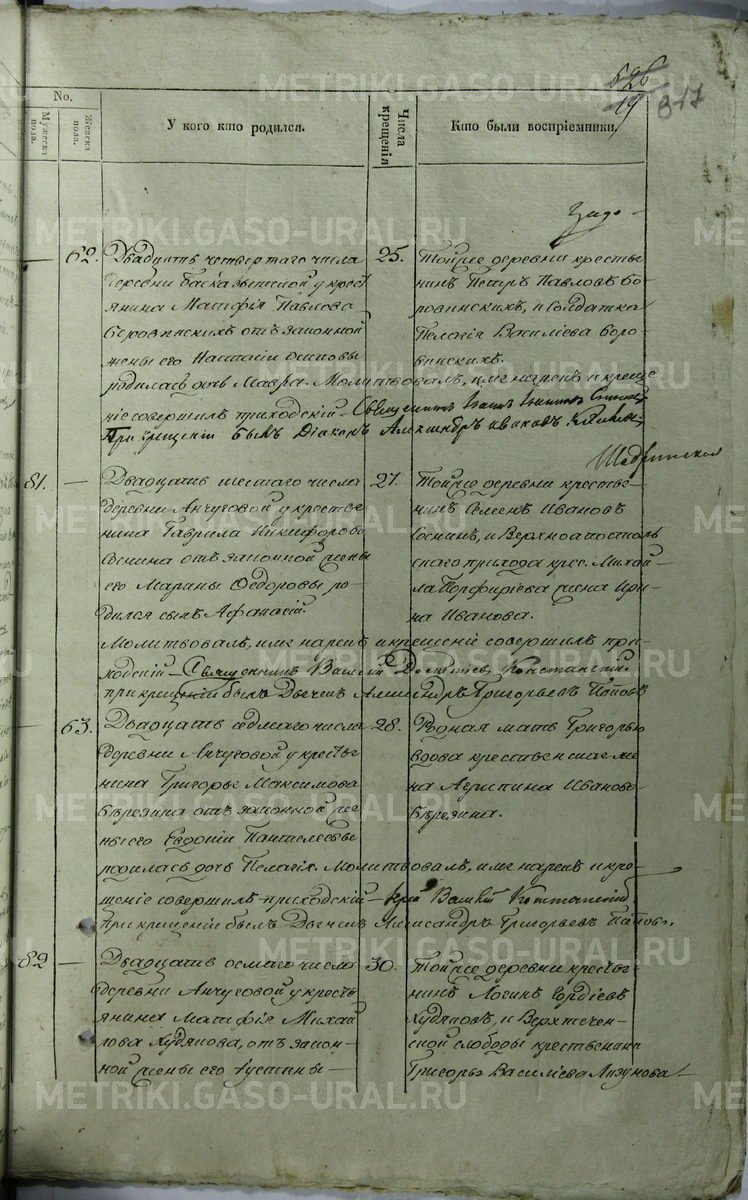 METRIKI.GASO-URAL.RU
526
19
817
No.
Мужеска пола.
Женска пола.
У кого кто родился.
Числа крещенія
Кто были воспріемники.
62. Двадцать четвертаго числа
деревни у крестъ
янина Матфія Павлова
Боровинскихъ отъ законной
жены его Настасіи
родилась дочь Мавра. Молитвовалъ, имя нарекъ и креще
ніе совершилъ приходскій Священникъ
При крещеніи былъ Діаконъ Александръ Ивановъ
25. Тойже деревни кресть
нинъ Петръ Павловъ Бо
ровинскихъ, и Солдатка
Пелагія Василіева Боро
винскихъ.
81. — Двадцать шестаго числа
деревни Анчуговой у крестья
нина Гаврила Никифорова
Соснина отъ законной жены
его Марины Ѳедоровы ро
дился сынъ Аѳанасій.
Молитвовалъ, имя нарекъ и крещеніе совершилъ при
ходскій — Священникъ Василій Констанскій
при крещеніи былъ Дьячекъ Александръ Григорьевъ Поповъ
27. Тойже деревни крестья
нинъ Семенъ Ивановъ
Соснинъ, и Верхноапостоль
скаго прихода крес. Михай
ла Порфирьева жена Ири
на Иванова.
— 63. Двадцать седмаго числа
деревни Анчуговой у крестья
нина Григорья Максимова
Бѣрезина отъ законной же
ны его Евдокіи Пантелеевы
родилась дочь Пелагія. Молитвовалъ, имя нарекъ и кре
щеніе совершилъ приходскій — Іерей Василій Констанскій
При крещеніи былъ Дьячекъ Александръ Григорьевъ Поповъ.
28. Родная мать Григорья
вдова крестьянская же
на Агрипина Иванова
Бѣрезина.
82 — Двадцать осмаго числа
деревни Анчуговой у кресть
янина Матфія Михай
лова Худякова, отъ закон
ной жены его Іустины
30. Тойже деревни крестья
нинъ Логинъ Гордѣевъ
Худяковъ, и Верхтечен
ской слободы крестьянина
Григорья Василіева Лизунова